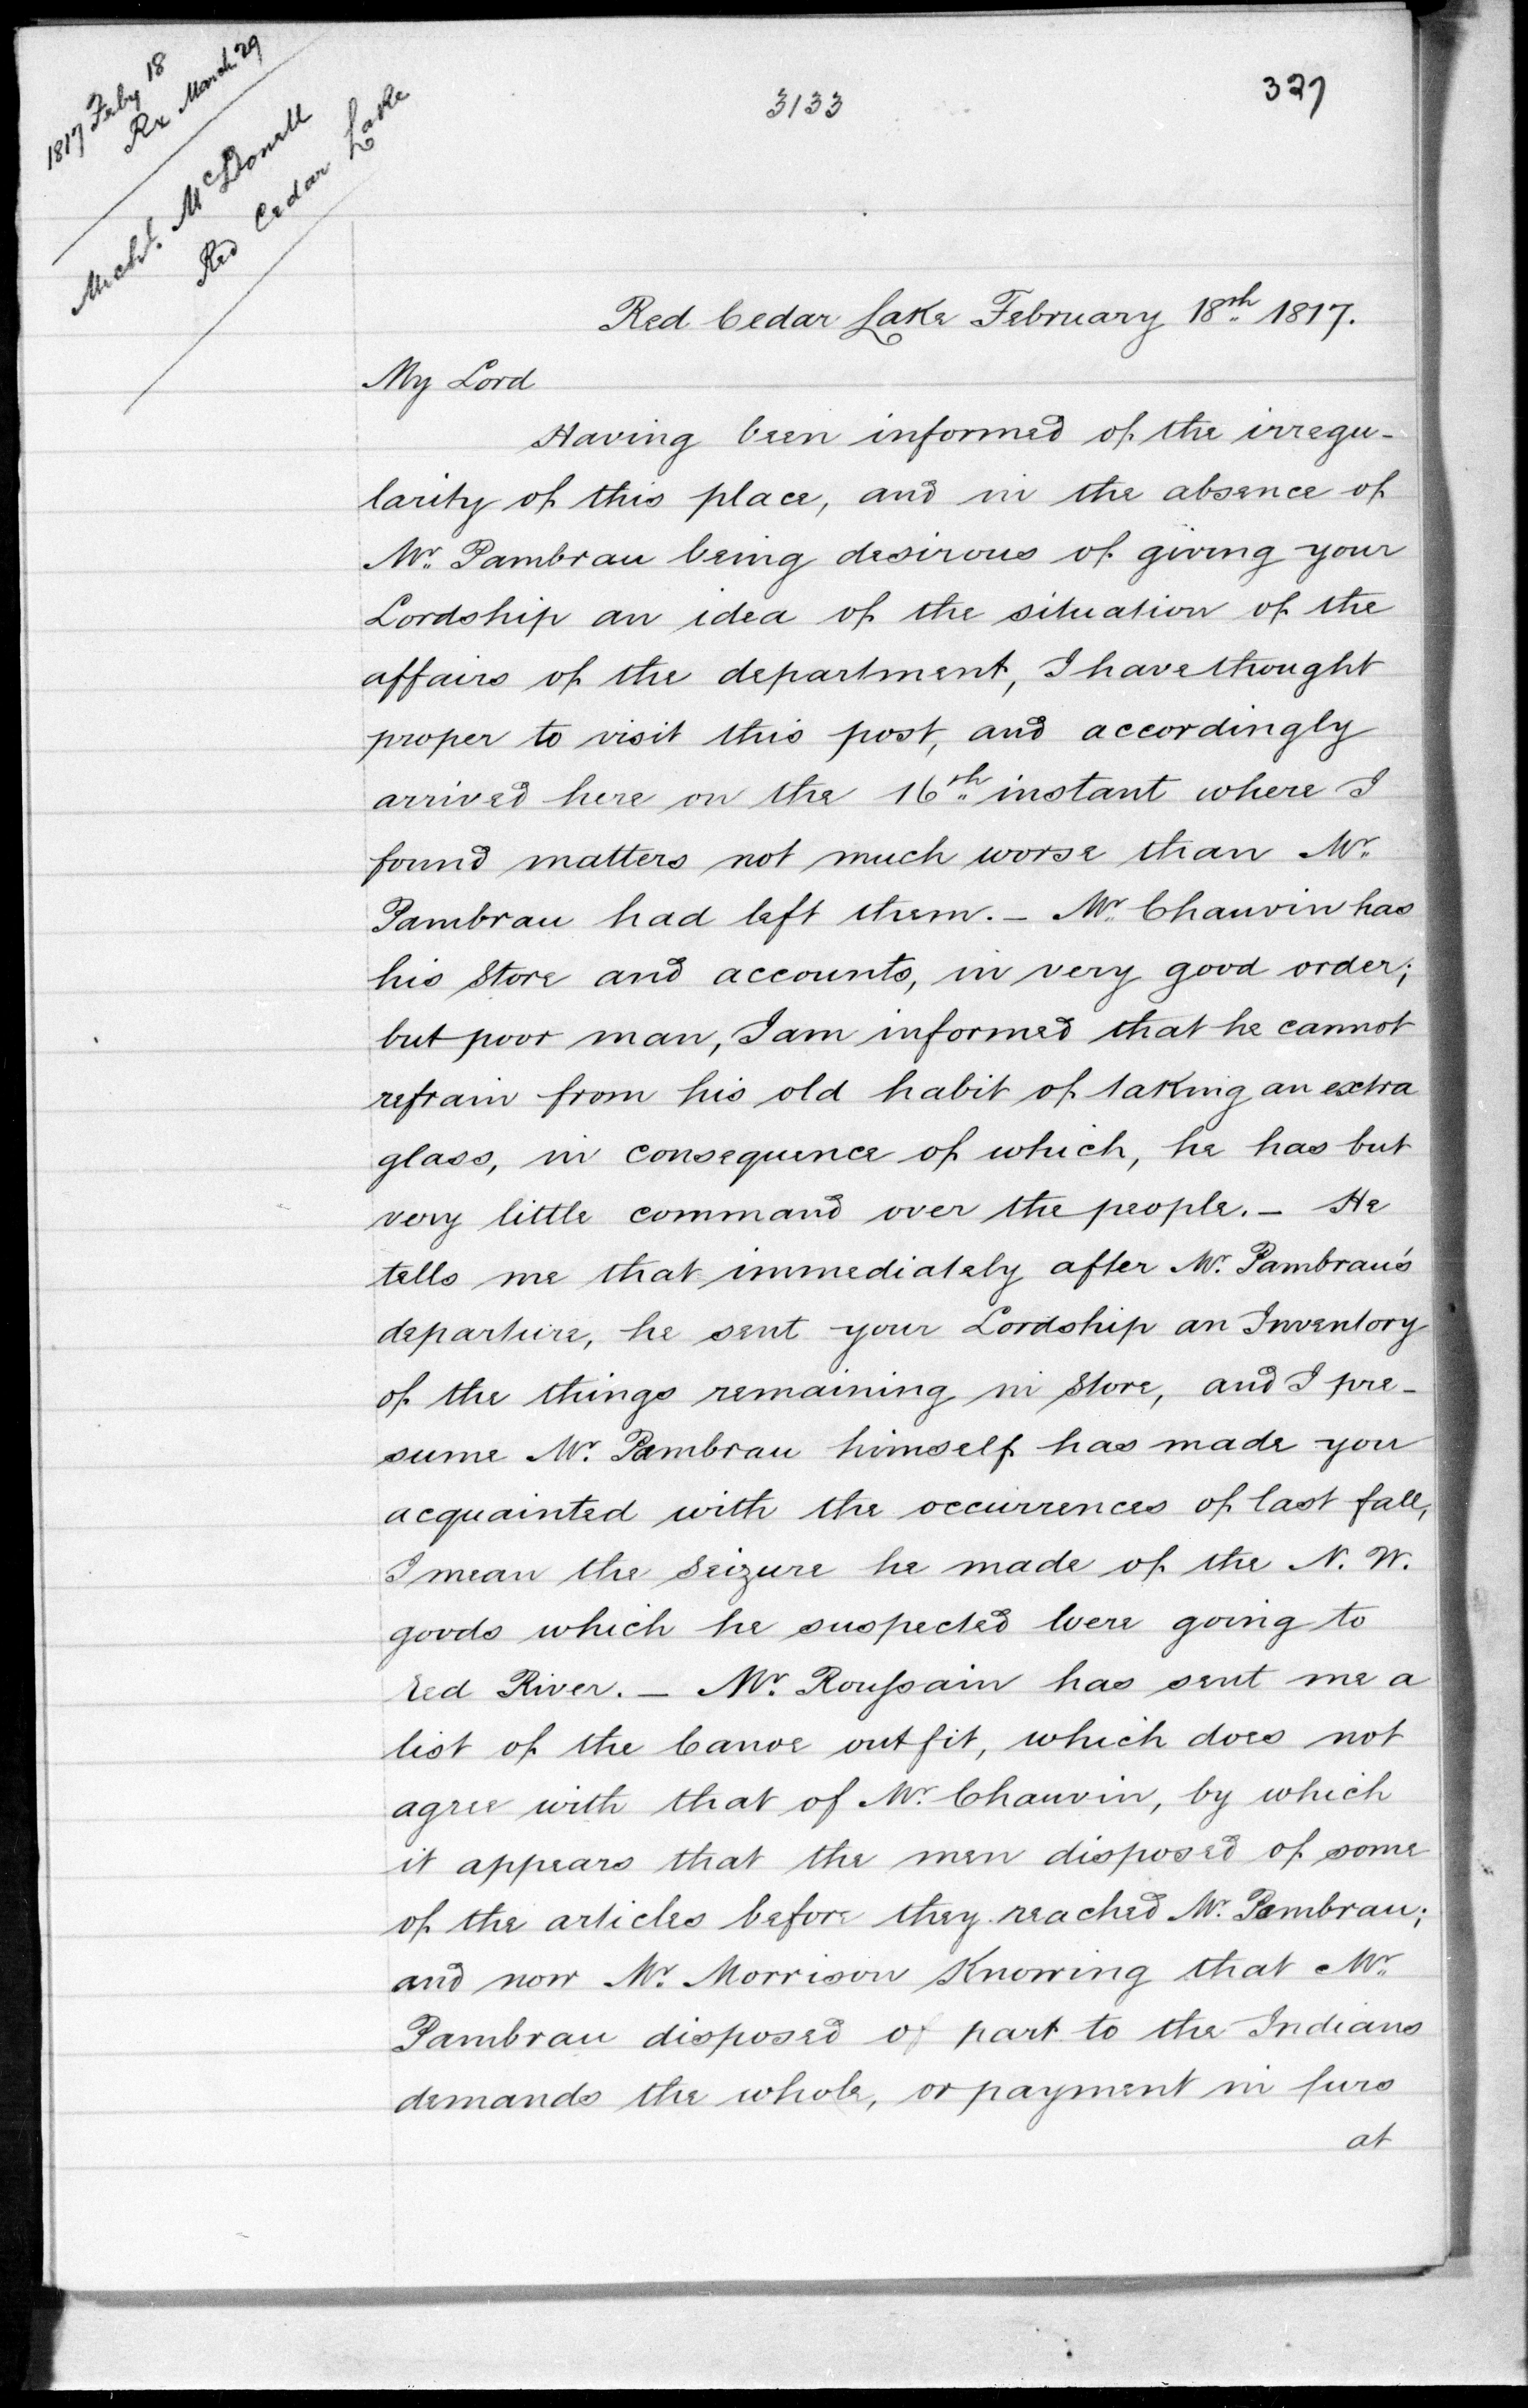 1817 Feby 18
Rx March 29
Michl. McDonell
Red Cedar Lake
3133
327
Red Cedar Lake February 18th 1817.
My Lord
Having been informed of the irregu-
larity of this place, and in the absence of
Mr. Pambrau being desirous of giving your
Lordship an idea of the situation of the
affairs of the department, I have thought
proper to visit this post, and accordingly
arrived here on the 16th instant where I
found matters not much worse than Mr.
Pambrau had left them. – Mr. Chauvin has
his Store and accounts, in very good order;
but poor man, I am informed that he cannot
refrain from his old habit of taking an extra
glass, in consequence of which, he has but
very little command over the people. – He
tells me that immediately after Mr. Pambrau's
departure, he sent your Lordship an Inventory
of the things remaining in Store, and I pre-
sume Mr. Pambrau himself has made you
acquainted with the occurrences of last fall,
I mean the Seizure he made of the N. W.
goods which he suspected were going to
Red River. – Mr. Roussain has sent me a
list of the Canoe outfit, which does not
agree with that of Mr. Chauvin, by which
it appears that the men disposed of some
of the articles before they reached Mr. Pambrau;
and now Mr. Morrison Knowing that Mr.
Pambrau disposed of part to the Indians
demands the whole, or payment in furs
at